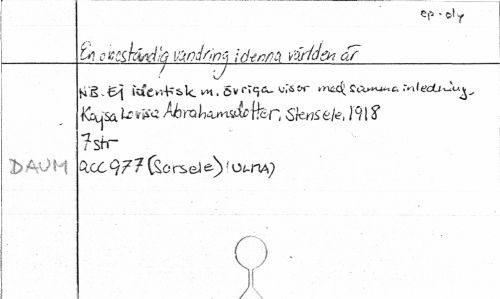 ep-oly
En obeständig vandring i denna världen är
NB. Ej identisk m. övriga visor med samma inledning.
Kajsa Lovisa Abrahamsdotter, Stensele, 1918
7 str
DAUM acc 977 (Sorsele) (ULMA)